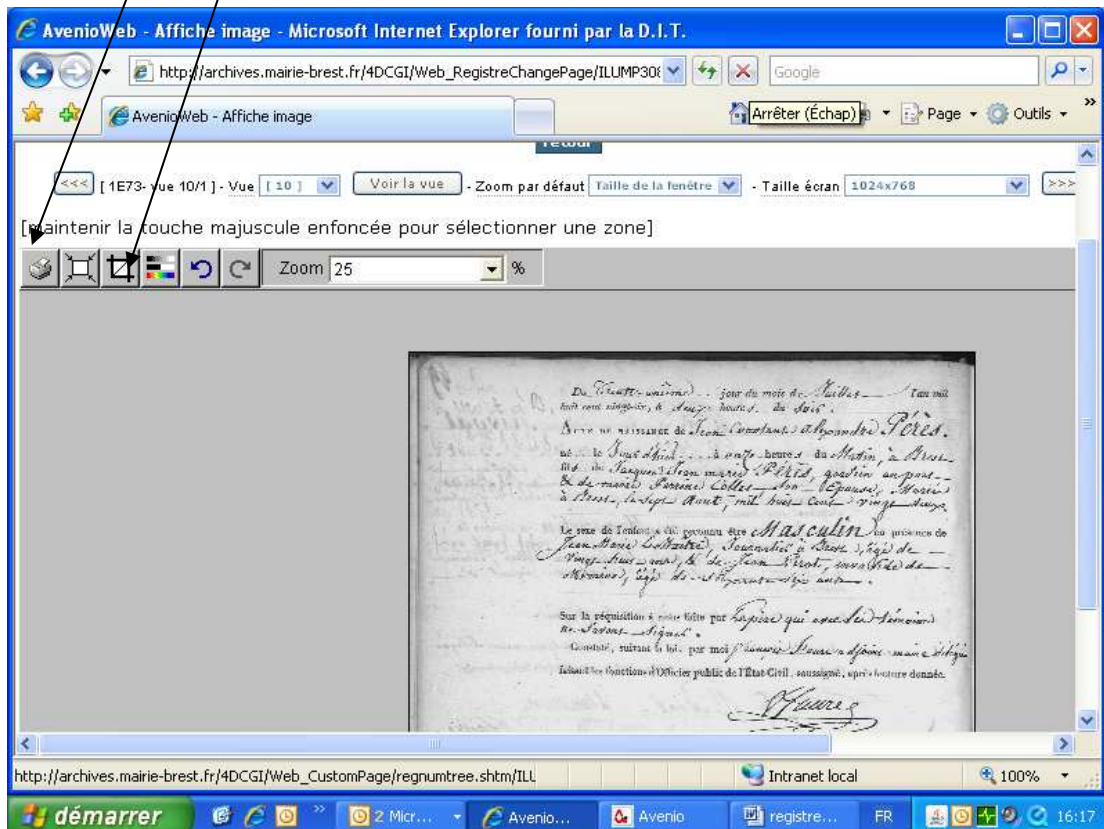 AvenioWeb - Affiche image - Microsoft Internet Explorer fourni par la D.I.T.
http://archives.mairie-brest.fr/4DCGI/Web_RegistreChangePage/ILUMP308
Google
AvenioWeb - Affiche image
Arrêter (Échap)
Page
Outils
retour
<<< [ 1E73- vue 10/1 ] - Vue [ 10 ] Voir la vue - Zoom par défaut Taille de la fenêtre - Taille écran 1024x768 >>>
[maintenir la touche majuscule enfoncée pour sélectionner une zone]
Zoom 25 %
Du Trente-unième jour du mois de Juillet l'an mil
huit cent vingt-six, à heures du Soir.
Acte de naissance de Jean Constant Alexandre Pérès.
né le à onze heures du Matin, à Brest
fils de Jacques Jean marie Pérès, gardien au port
& de marie Perrine son Epouse, Mariés
à Brest, le sept Aout, mil huit Cent vingt deux.
Le sexe de l'enfant a été reconnu être Masculin en présence de
Jean Marie journalier à Brest, âgé de
Vingt ans, & de Jean invalide de
âgé de ans.
Sur la réquisition à nous faite par le père qui avec les témoins
ne Savent Signer.
Constaté, suivant la loi, par moi adjoint maire délégué
faisant les fonctions d'Officier public de l'État-Civil, soussigné, après lecture donnée.
http://archives.mairie-brest.fr/4DCGI/Web_CustomPage/regnumtree.shtm/ILL
Intranet local
100%
démarrer
2 Micr...
Avenio...
Avenio
registre...
FR
16:17